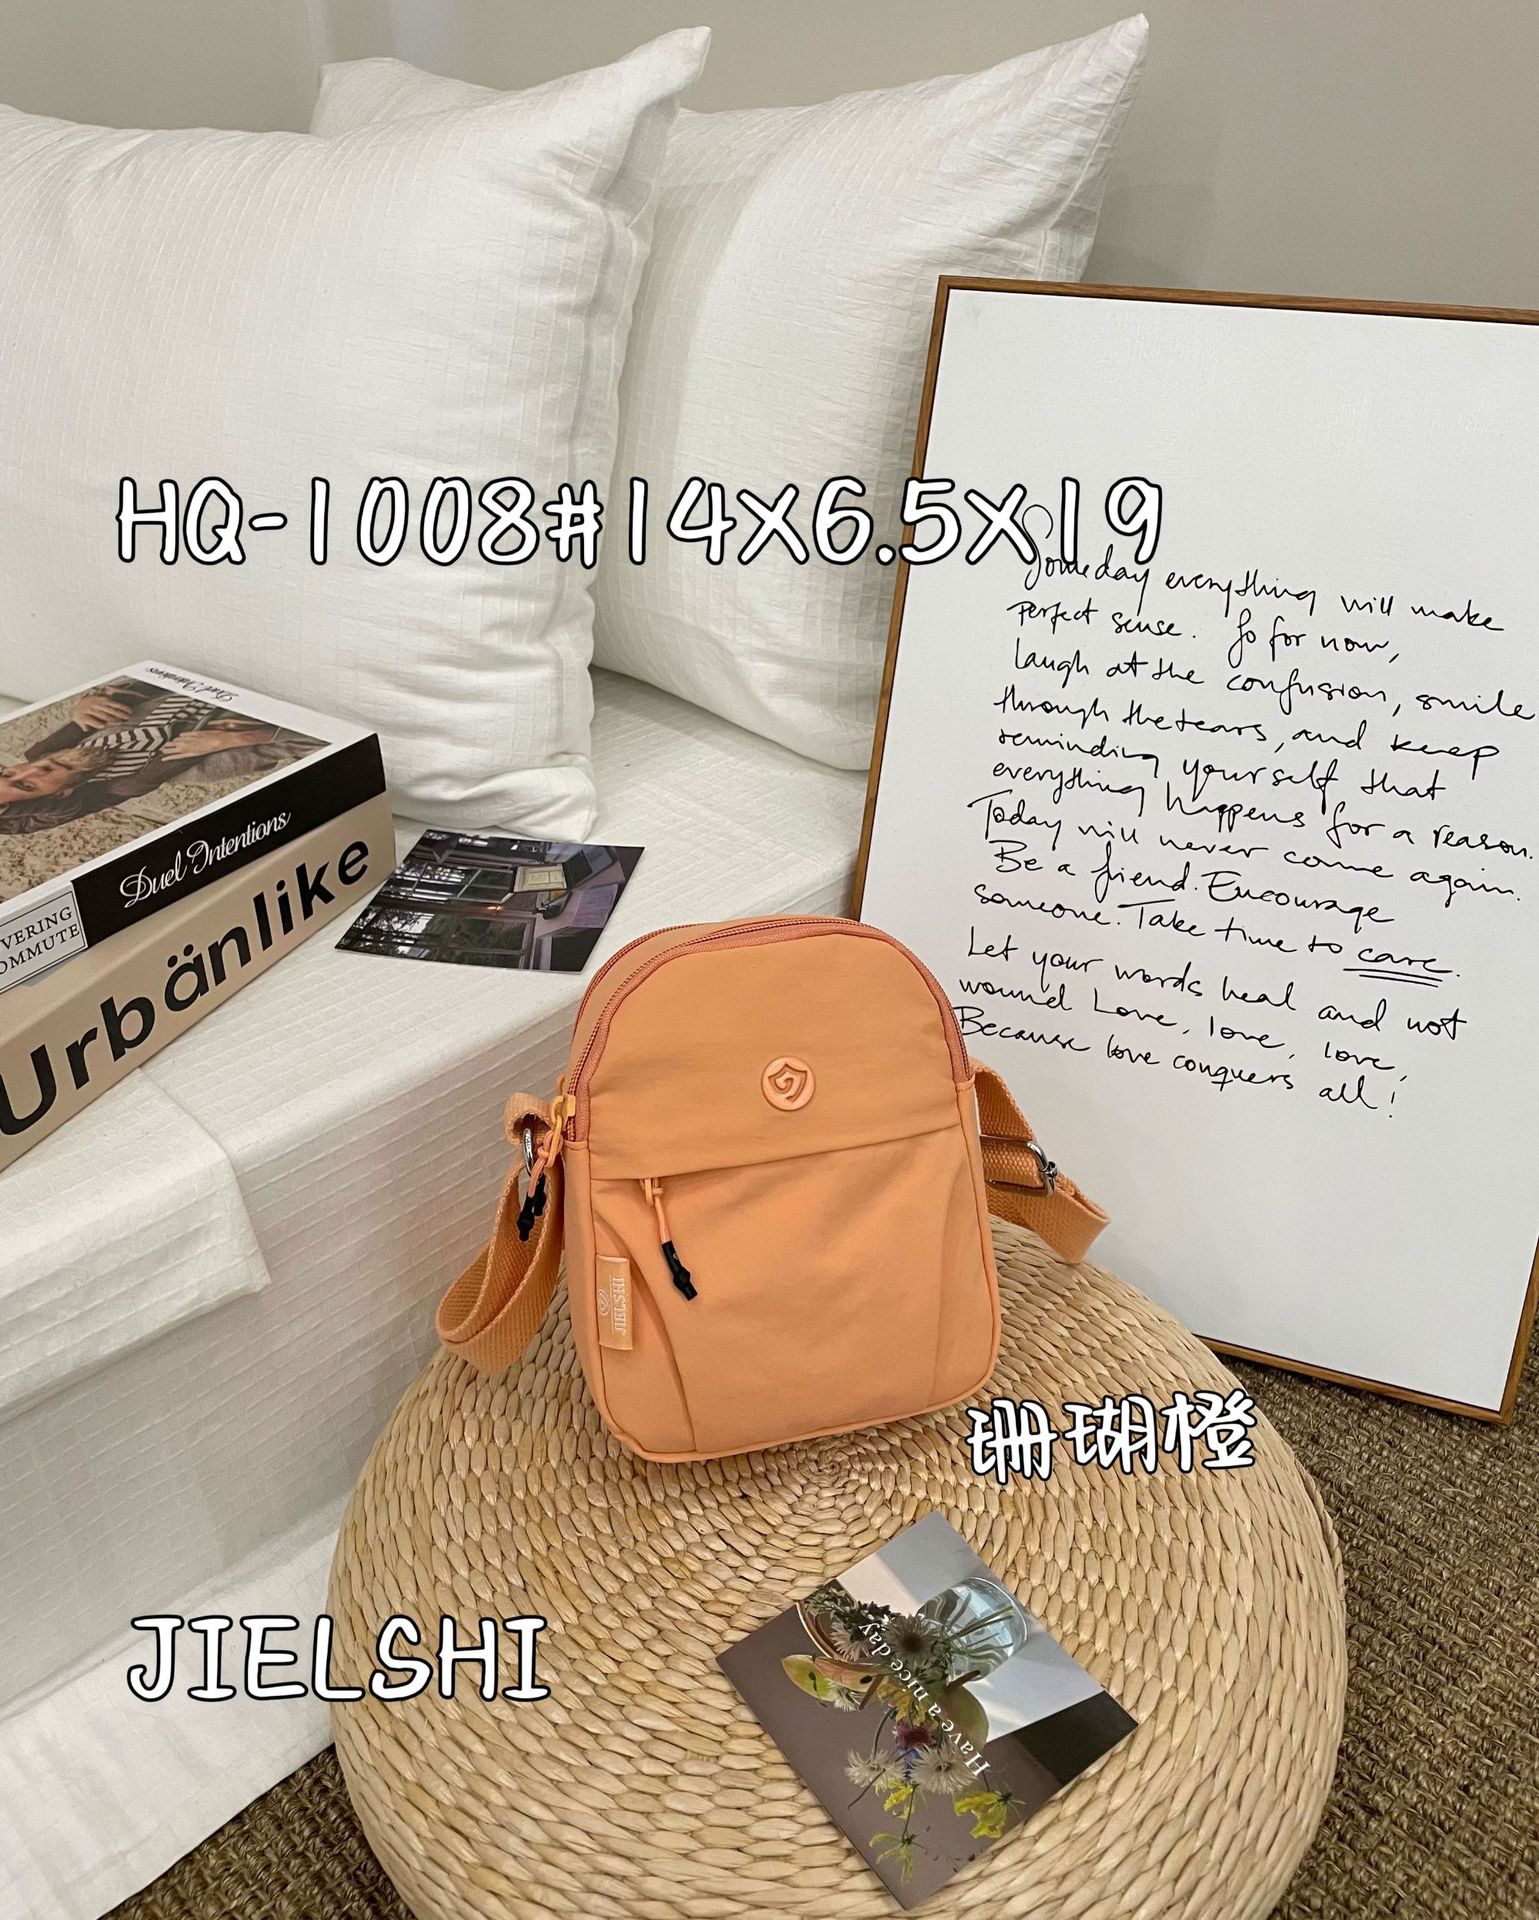 HQ-1008#14X6.5X19
Someday everything will make
perfect sense. So for now,
laugh at the confusion, smile
through the tears, and keep
reminding yourself that
everything happens for a reason.
Today will never come again.
Be a friend. Encourage
someone. Take time to care.
Let your words heal and not
wound Love, love, love,
Because love conquers all!
Duel Intentions
Duel Intentions
VERING
OMMUTE
Urbänlike
JIELSHI
珊瑚橙
JIELSHI
Have a nice day